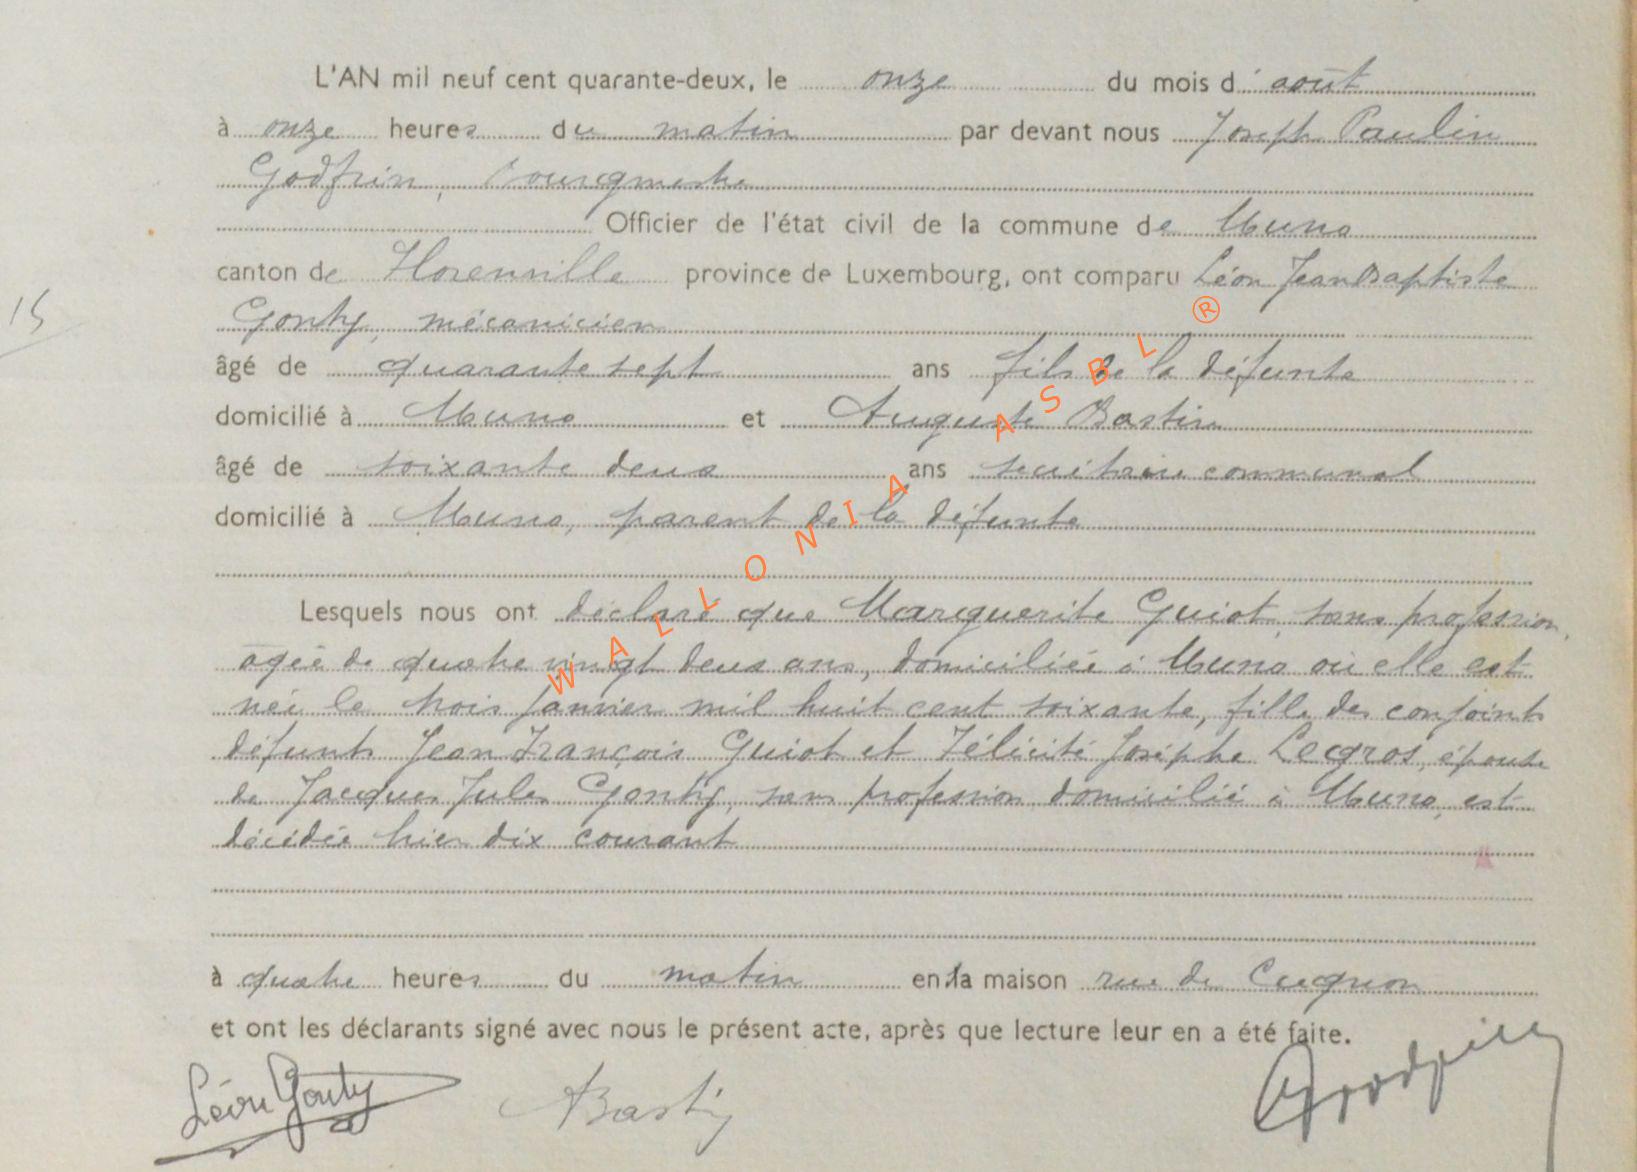 L'AN mil neuf cent quarante-deux, le onze du mois d'août
à onze heures du matin par devant nous Joseph Paulin
Godfrin, Bourgmestre
Officier de l'état civil de la commune de Muno
canton de Florenville province de Luxembourg, ont comparu Léon Jean Baptiste
15
Gonty, mécanicien
âgé de quarante sept ans fils de la défunte
domicilié à Muno et Auguste Bastin
âgé de soixante deux ans secrétaire communal
domicilié à Muno, parent de la défunte
Lesquels nous ont déclaré que Marguerite Guiot, sans profession,
âgée de quatre vingt deux ans, domiciliée à Muno où elle est
née le trois Janvier mil huit cent soixante, fille des conjoints
défunts Jean François Guiot et Félicité Josèphe Legros, épouse
de Jacques Jules Gonty, sans profession domicilié à Muno, est
décédée hier dix courant
à quatre heures du matin en la maison rue de Cugnon
et ont les déclarants signé avec nous le présent acte, après que lecture leur en a été faite.
Léon Gonty ABastin
WALLONIA ASBL ®